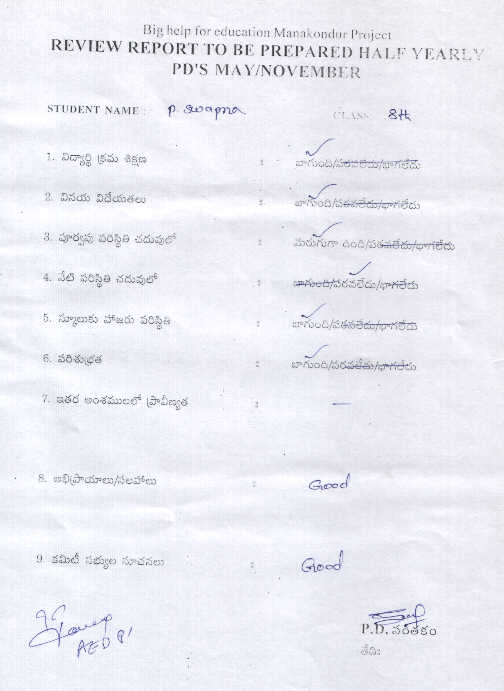 Big help for education Manakondur Project
REVIEW REPORT TO BE PREPARED HALF YEARLY
PD'S MAY/NOVEMBER
STUDENT NAME : P. Swapna CLASS 8th
1. విద్యార్థి క్రమ శిక్షణ : బాగుంది/పరవలేదు/బాగలేదు
2. వినయ విధేయతలు : బాగుంది/పరవలేదు/బాగలేదు
3. పూర్వపు పరిస్థితి చదువులో : మెరుగుగా ఉంది/పరవలేదు/బాగలేదు
4. నేటి పరిస్థితి చదువులో : బాగుంది/పరవలేదు/బాగలేదు
5. స్కూలుకు హాజరు పరిస్థితి : బాగుంది/పరవలేదు/బాగలేదు
6. పరిశుభ్రత : బాగుంది/పరవలేదు/బాగలేదు
7. ఇతర అంశములలో ప్రావీణ్యత : —
8. అభిప్రాయాలు/సలహాలు : Good
9. కమిటీ సభ్యుల సూచనలు : Good
P.D. సంతకం
తేది: